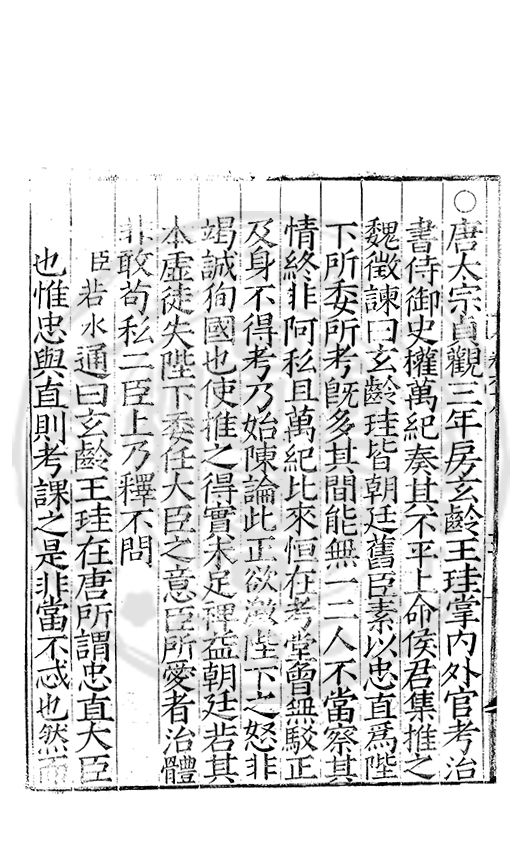 ○唐太宗貞觀三年房玄齡王珪掌內外官考治
書侍御史權萬紀奏其不平上命侯君集推之
魏徵諫曰玄齡珪皆朝廷舊臣素以忠直爲陛
下所委所考旣多其間能無一二人不當察其
情終非阿私且萬紀比來恒在考堂曾無駁正
及身不得考乃始陳論此正欲激陛下之怒非
竭誠徇國也使推之得實未足裨益朝廷若其
本虛徒失陛下委任大臣之意臣所愛者治體
非敢苟私二臣上乃釋不問
臣若水通曰玄齡王珪在唐所謂忠直大臣
也惟忠與直則考課之是非當不忒也然而